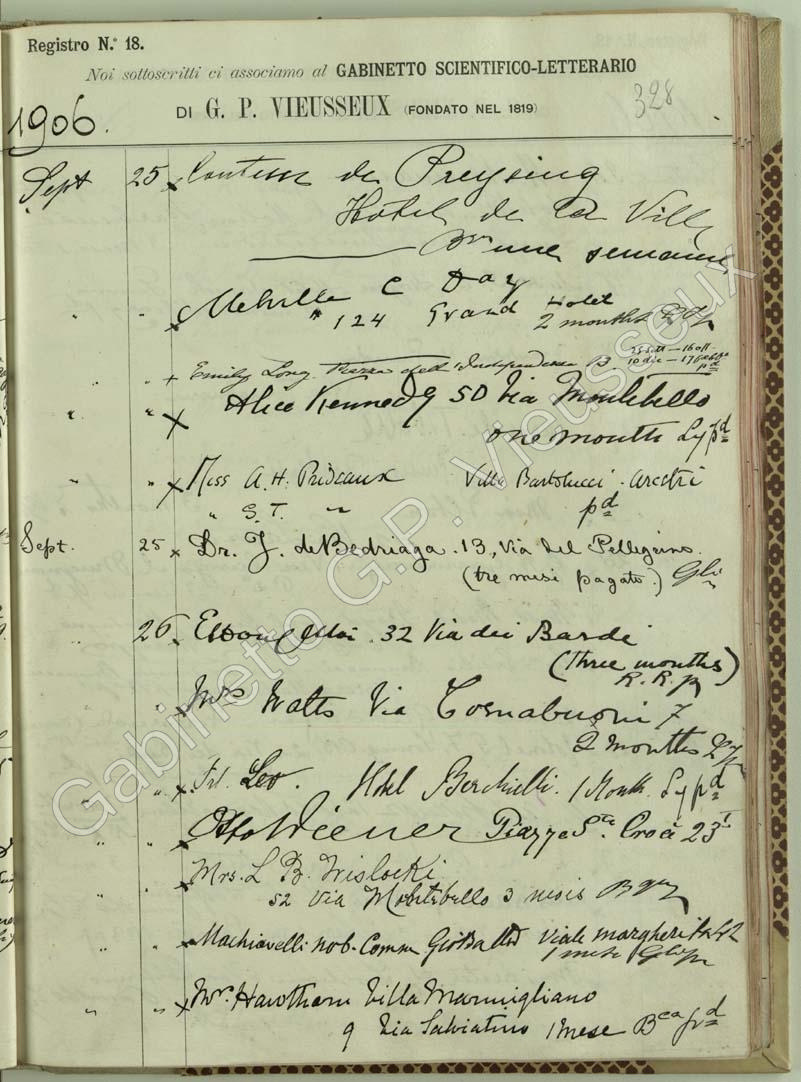 Registro N.º 18.
Noi sottoscritti ci associamo al GABINETTO SCIENTIFICO-LETTERARIO
DI G. P. VIEUSSEUX (FONDATO NEL 1819)
328
1906.
Sept 25 x Contesse de Preysing
Hôtel de la Ville
une semaine
" " x Melville C Day
" 124 Grand Hotel
2 months
" " x Emily Long Piazza dell'Indipendenza B.
" " x Alice Kennedy 50 Via Montebello
one month pd
" " x Miss A. H. Prideaux Villa Bartolucci - Arcetri
" S. T. " pd
Sept. 25 x Dr. J. de Bedriaga. 13, Via del Pellegrino.
(tre mesi pagato.)
26 32 Via dei Bardi
(Three months)
R. R.
" x Mrs Watts Via Tornabuoni 7
2 months
" x Frl. Leo. Hotel Berchielli. 1 Month. pd
" x Otto Wiener Piazza Sta Croce 23
" x Mrs. L. B. Wislocki
52 Via Montebello 3 mois
" " x Machiavelli nob. Comm Gio Batta Viale Margherita 42
1 mese
" " x Mr. Hawthorn Villa Marmigliano
9 Via Salviatino 1 mese pd
Gabinetto G.P. Vieusseux